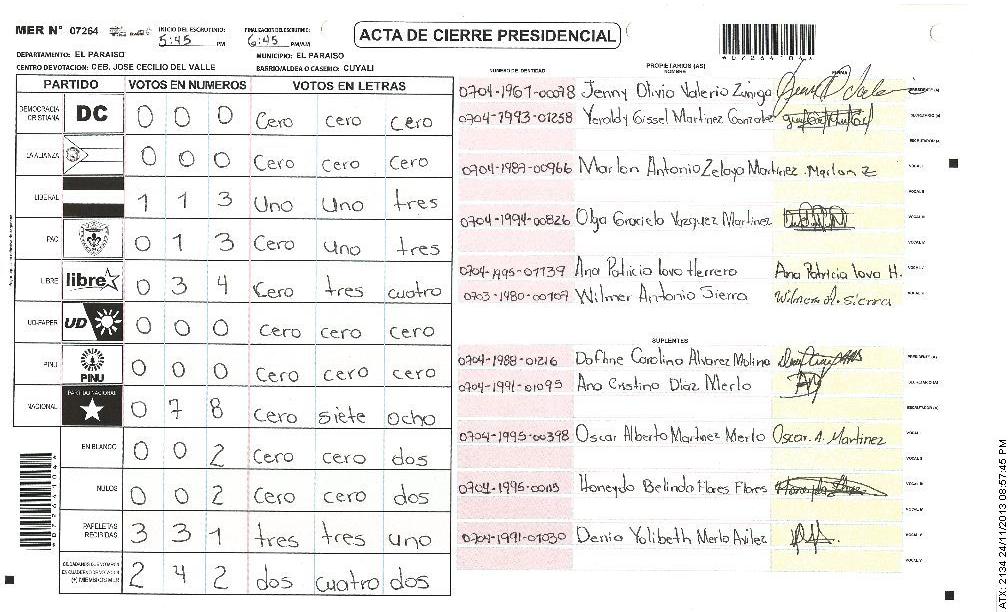 MER Nº 07264
INICIO DEL ESCRUTINIO: 5:45 PM
FINALIZACION DEL ESCRUTINIO: 6:45 PM/AM
ACTA DE CIERRE PRESIDENCIAL
DEPARTAMENTO: EL PARAISO
MUNICIPIO: EL PARAISO
CENTRO DE VOTACION: CEB. JOSE CECILIO DEL VALLE
BARRIO/ALDEA O CASERIO: CUYALI
PARTIDO VOTOS EN NUMEROS VOTOS EN LETRAS
DEMOCRACIA CRISTIANA DC 0 0 0 Cero cero cero
LA ALIANZA 0 0 0 Cero cero cero
LIBERAL 1 1 3 Uno Uno tres
PAC 0 1 3 Cero uno tres
LIBRE libre 0 3 4 Cero tres cuatro
UD-FAPER UD 0 0 0 Cero cero cero
PINU PINU 0 0 0 Cero cero cero
NACIONAL PARTIDO NACIONAL 0 7 8 Cero siete ocho
EN BLANCO 0 0 2 Cero cero dos
NULOS 0 0 2 Cero cero dos
PAPELETAS RECIBIDAS 3 3 1 tres tres uno
(+) MIEMBROS MER 2 4 2 dos cuatro dos
NUMERO DE IDENTIDAD PROPIETARIOS (AS) NOMBRE FIRMA
0704-1967-00078 Jenny Olivia Valerio Zuniga
0704-1993-01258 Yeraldy Gissel Martinez Gonzalez
0704-1987-00966 Marlon Antonio Zelaya Martinez Marlon Z
0704-1994-00826 Olga Graciela Vazquez Martinez
0704-1995-01139 Ana Patricia Lovo Herrero Ana Patricia Lovo H.
0703-1980-00109 Wilmer Antonio Sierra Wilmer A. Sierra
SUPLENTES
0704-1988-01216 Dafhne Carolina Alvarez Molina
0704-1991-01095 Ana Cristina Diaz Merlo
0704-1995-00398 Oscar Alberto Martinez Merlo Oscar. A. Martinez
Honeyda Belinda Flores Flores
0704-1991-01030 Denia Yolibeth Merlo Avilez
ATX: 2134 24/11/2013 08:57:45 PM